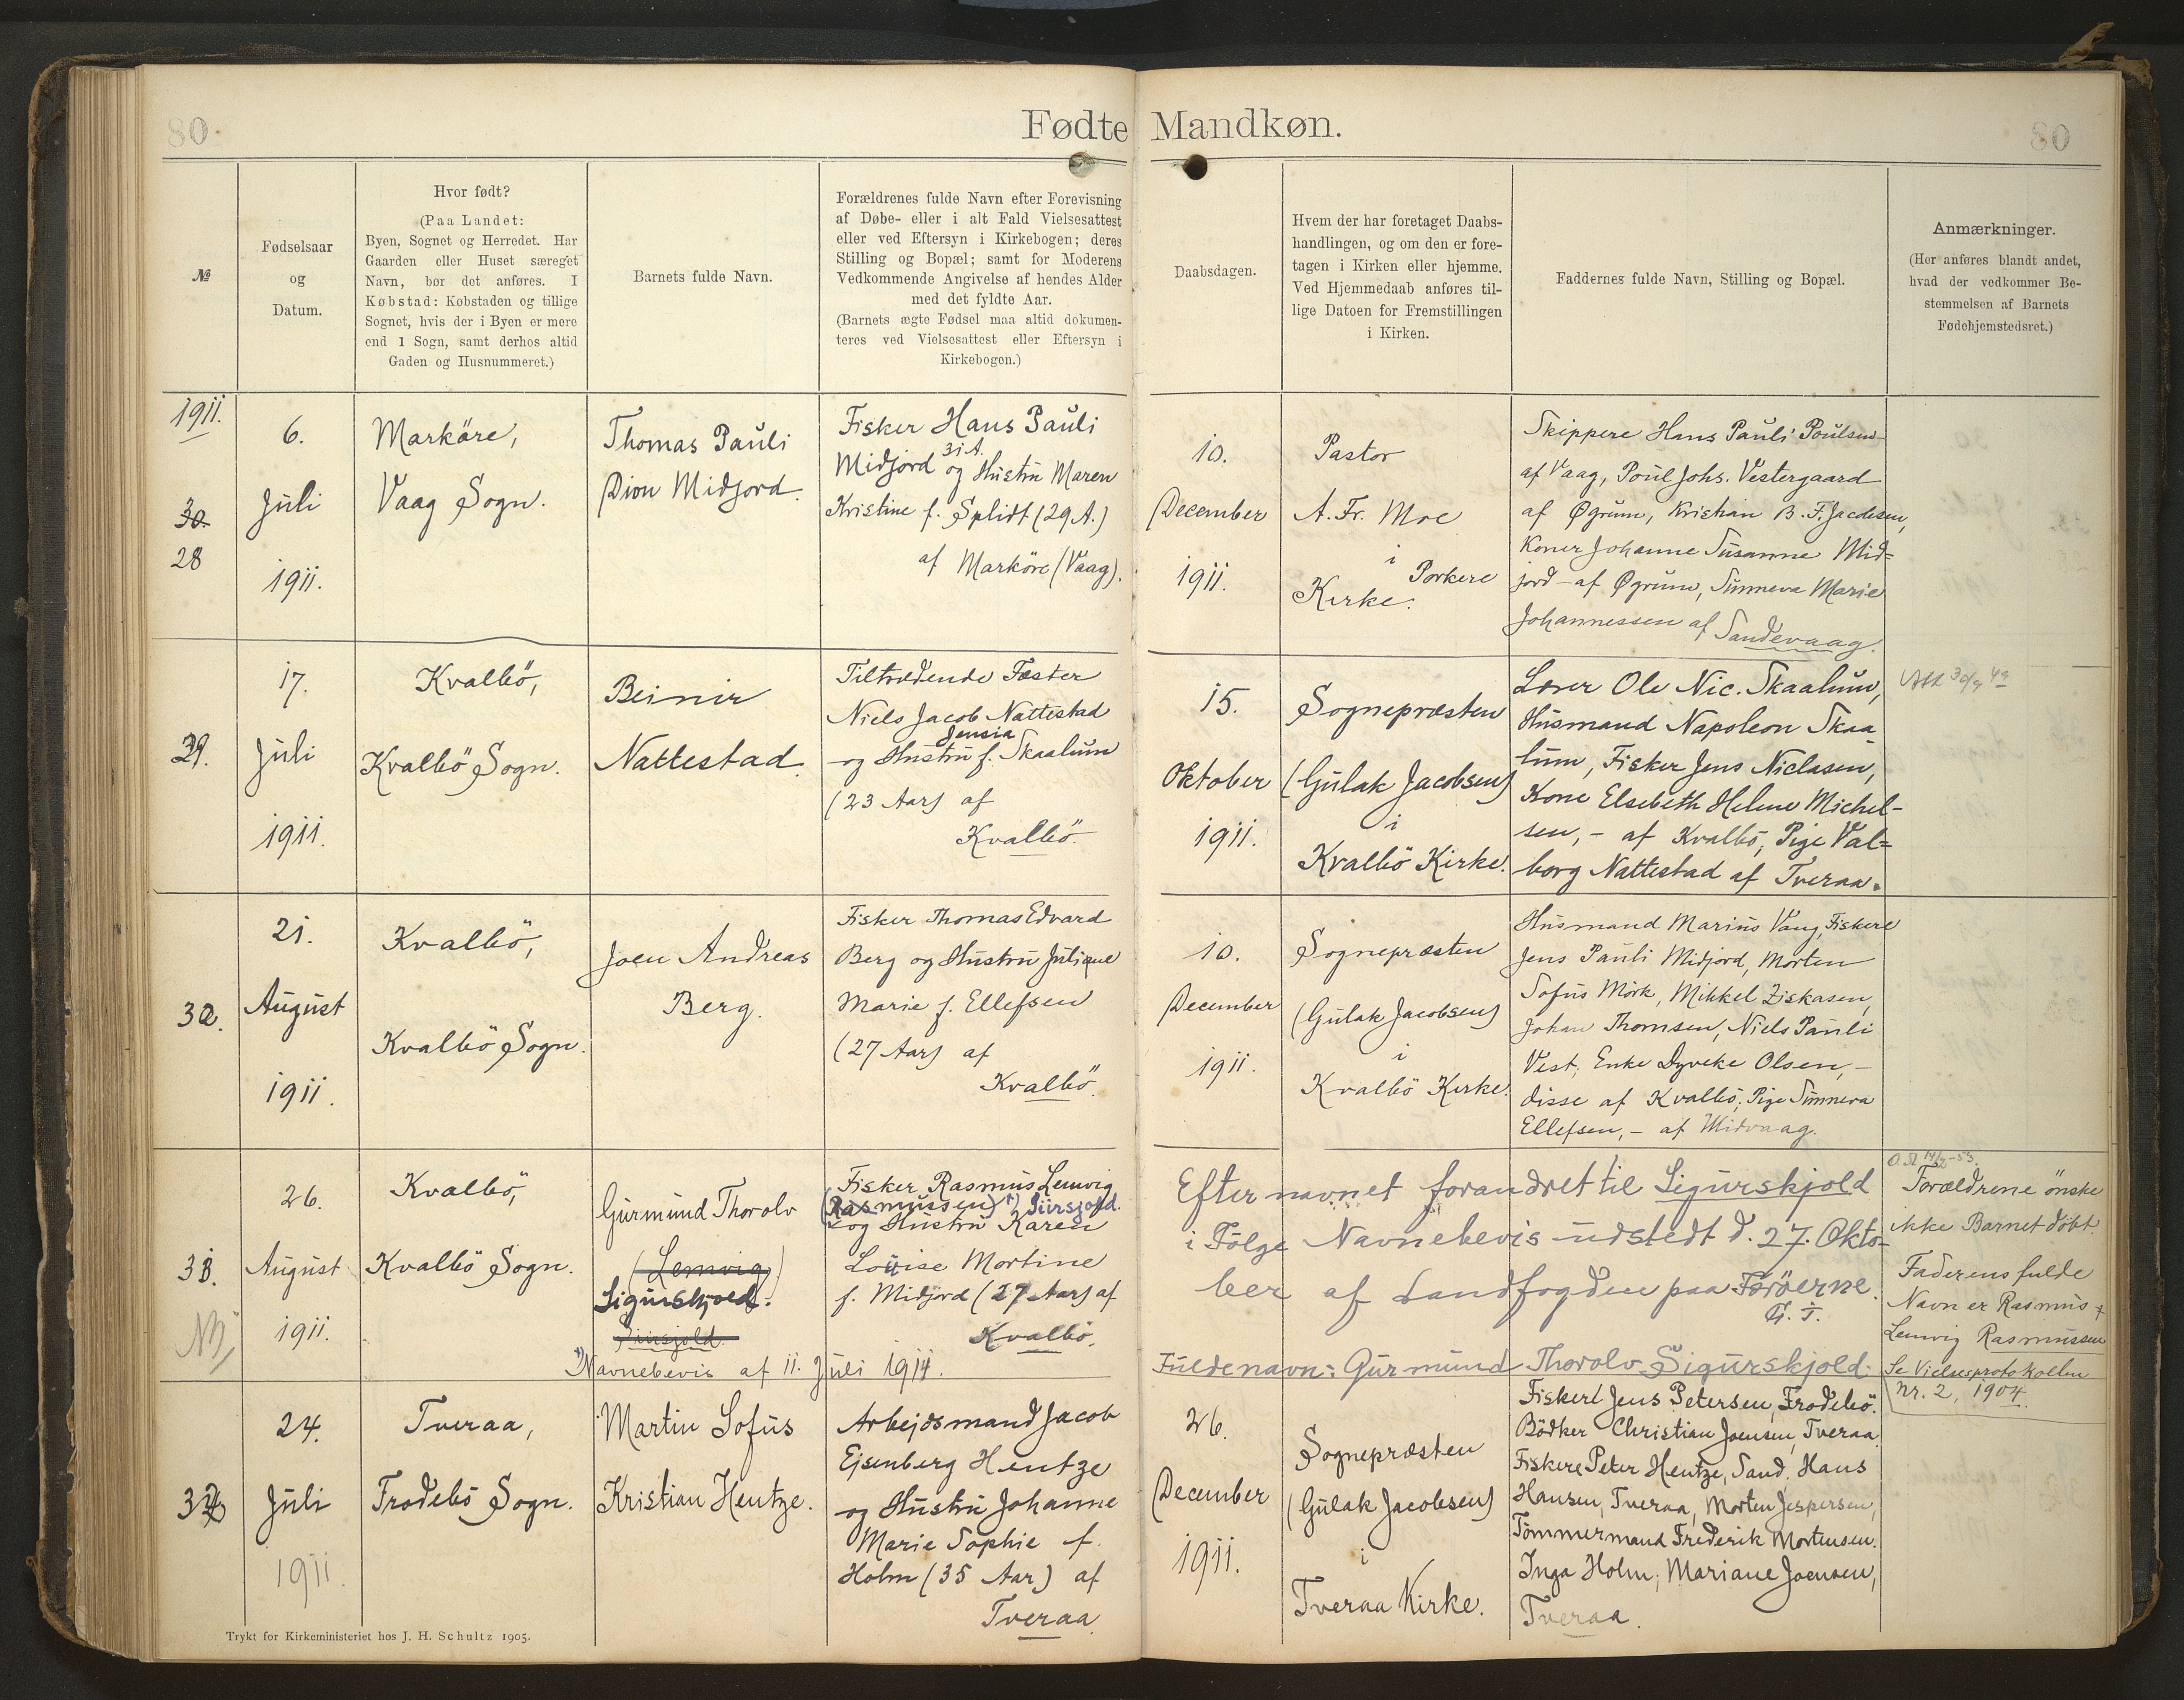 80.
Fødte Mandkøn.
80
№
Fødselsaar
og
Datum.
Hvor født?
(Paa Landet:
Byen, Sognet og Herredet. Har
Gaarden eller Huset særeget
Navn, bør det anføres. I
Købstad: Købstaden og tillige
Sognet, hvis der i Byen er mere
end 1 Sogn, samt derhos altid
Gaden og Husnummeret.)
Barnets fulde Navn.
Forældrenes fulde Navn efter Forevisning
af Døbe- eller i alt Fald Vielsesattest
eller ved Eftersyn i Kirkebogen; deres
Stilling og Bopæl; samt for Moderens
Vedkommende Angivelse af hendes Alder
med det fyldte Aar.
(Barnets ægte Fødsel maa altid dokumen-
teres ved Vielsesattest eller Eftersyn i
Kirkebogen.)
Daabsdagen.
Hvem der har foretaget Daabs-
handlingen, og om den er fore-
tagen i Kirken eller hjemme.
Ved Hjemmedaab anføres til-
lige Datoen for Fremstillingen
i Kirken.
Faddernes fulde Navn, Stilling og Bopæl.
Anmærkninger.
(Her anføres blandt andet,
hvad der vedkommer Be-
stemmelsen af Barnets
Fødehjemstedsret.)
1911.
30
28
6.
Juli
1911.
Marköre,
Vaag Sogn.
Thomas Pauli
Dion Midjord.
Fisker Hans Pauli
31 A.
Midjord og Hustru Maren
Kristine f. Splidt (29 A.)
af Marköre (Vaag).
10.
December
1911.
Pastor
A. Fr. Moe
i
Porkere
Kirke.
Skippere Hans Pauli Poulsen
af Vaag, Poul Johs. Vestergaard
af Øgrum, Kristian B. F. Jacobsen,
Koner Johanne Susanne Mid=
jord - af Øgrum, Sunneva Marie
Johannessen af Sandevaag.
29.
17.
Juli
1911.
Kvalbö,
Kvalbö Sogn.
Beinir
Nattestad.
Tiltrædende Fæster
Niels Jacob Nattestad
Jensia
og Hustru f. Skaalum
(23 Aar) af
Kvalbö.
15.
Oktober
1911.
Sognepræsten
(Gulak Jacobsen)
i
Kvalbö Kirke.
Lærer Ole Nic. Skaalum,
Husmand Napoleon Skaa
lum, Fisker Jens Niclasen,
Kone Elsebeth Helene Michel-
sen, - af Kvalbö, Pige Val=
borg Nattestad af Tveraa.
30.
21.
August
1911.
Kvalbö,
Kvalbö Sogn.
Joen Andreas
Berg.
Fisker Thomas Edvard
Berg og Hustru Juliane
Marie f. Ellefsen
(27 Aar) af
Kvalbö.
10.
December
1911.
Sognepræsten
(Gulak Jacobsen)
i
Kvalbö Kirke.
Husmand Marius Vang, Fiskere
Jens Pauli Midjord, Morten
Sofus Mörk, Mikkel Ziskasen,
Johan Thomsen, Niels Pauli
Vest, Enke Dyveke Olsen, -
disse af Kvalbö; Pige Sunneva
Ellefsen, - af Midvaag.
31.
NB
26.
August
1911.
Kvalbö,
Kvalbö Sogn.
Gurmund Thorolv
(Lemvig)
Sigurskjold.
Fisker Rasmus Lemvig
(Rasmussen)
og Hustru Karen
Louise Mortine
f. Midjord (27 Aar) af
Kvalbö.
Navnebevis af 11. Juli 1914.
Efternavnet forandret til Sigurskjold
i Fölge Navnebevis udstedt d. 27. Okto-
ber af Landfogden paa Færöerne.
Fulde navn: Gurmund Thorolv Sigurskjold.
Forældrene önske
ikke Barnet döbt.
Faderens fulde
Navn er Rasmus
Lemvig Rasmussen
Se Vielsesprotokollen
Nr. 2, 1904.
32
24.
Juli
1911.
Tveraa,
Frodebö Sogn.
Martin Sofus
Kristian Hentze.
Arbejdsmand Jacob
Ejsenberg Hentze
og Hustru Johanne
Marie Sophie f.
Holm (35 Aar) af
Tveraa.
26.
December
1911.
Sognepræsten
(Gulak Jacobsen)
i
Tveraa Kirke.
Fiskere Jens Petersen, Frodebö.
Bödker Christian Joensen, Tveraa.
Fiskere Peter Hentze, Sand. Hans
Hansen, Tveraa, Morten Jespersen,
Tömmermand Frederik Mortensen.
Inga Holm, Mariane Joensen,
Tveraa.
Trykt for Kirkeministeriet hos J. H. Schultz 1905.